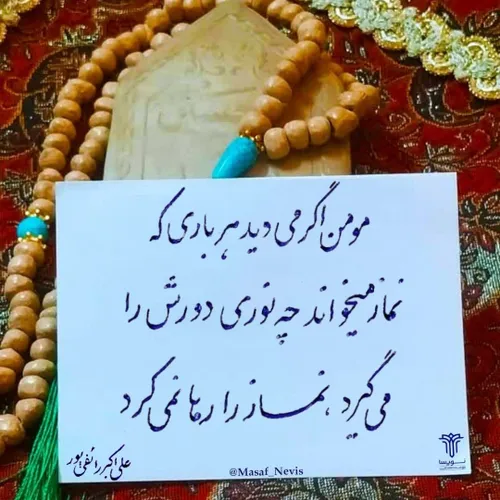 مومن اگر می دید هر باری که
نماز میخواند چه نوری دورش را
می گیرد، نماز را رها نمی کرد
علی اکبر رائفی پور
@Masaf_Nevis
نویسا